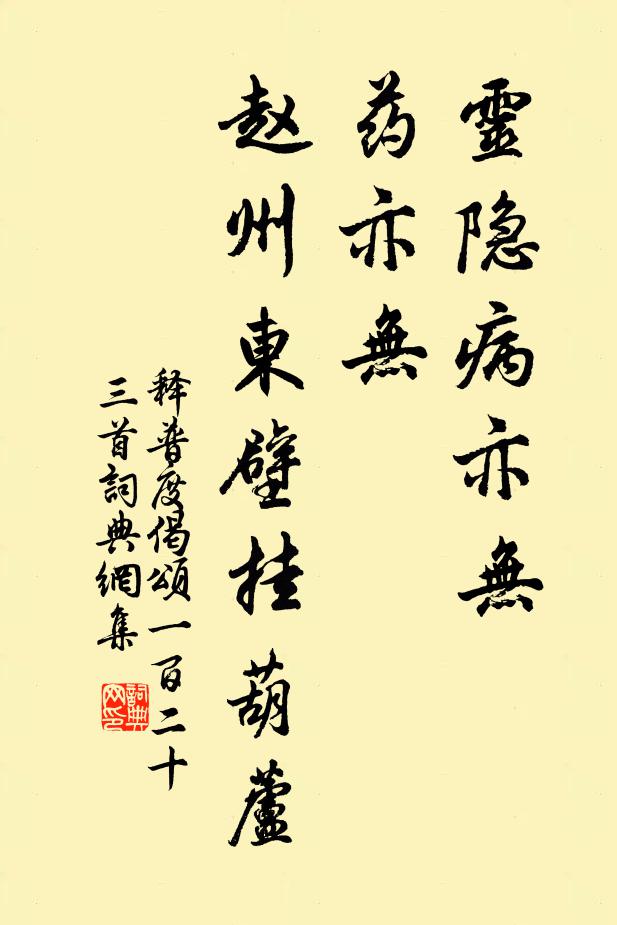 靈隐病亦無
药亦無
赵州東壁挂葫蘆
释普度偈頌一百二十
三首詞典網集
詞典
网印